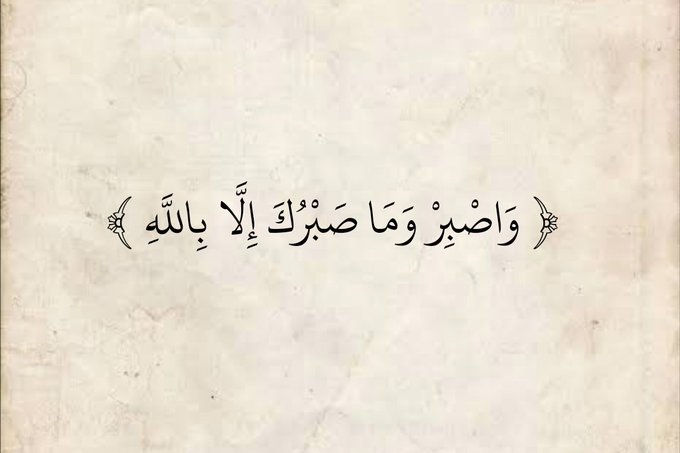 ﴿ وَاصْبِرْ وَمَا صَبْرُكَ إِلَّا بِاللَّهِ ﴾